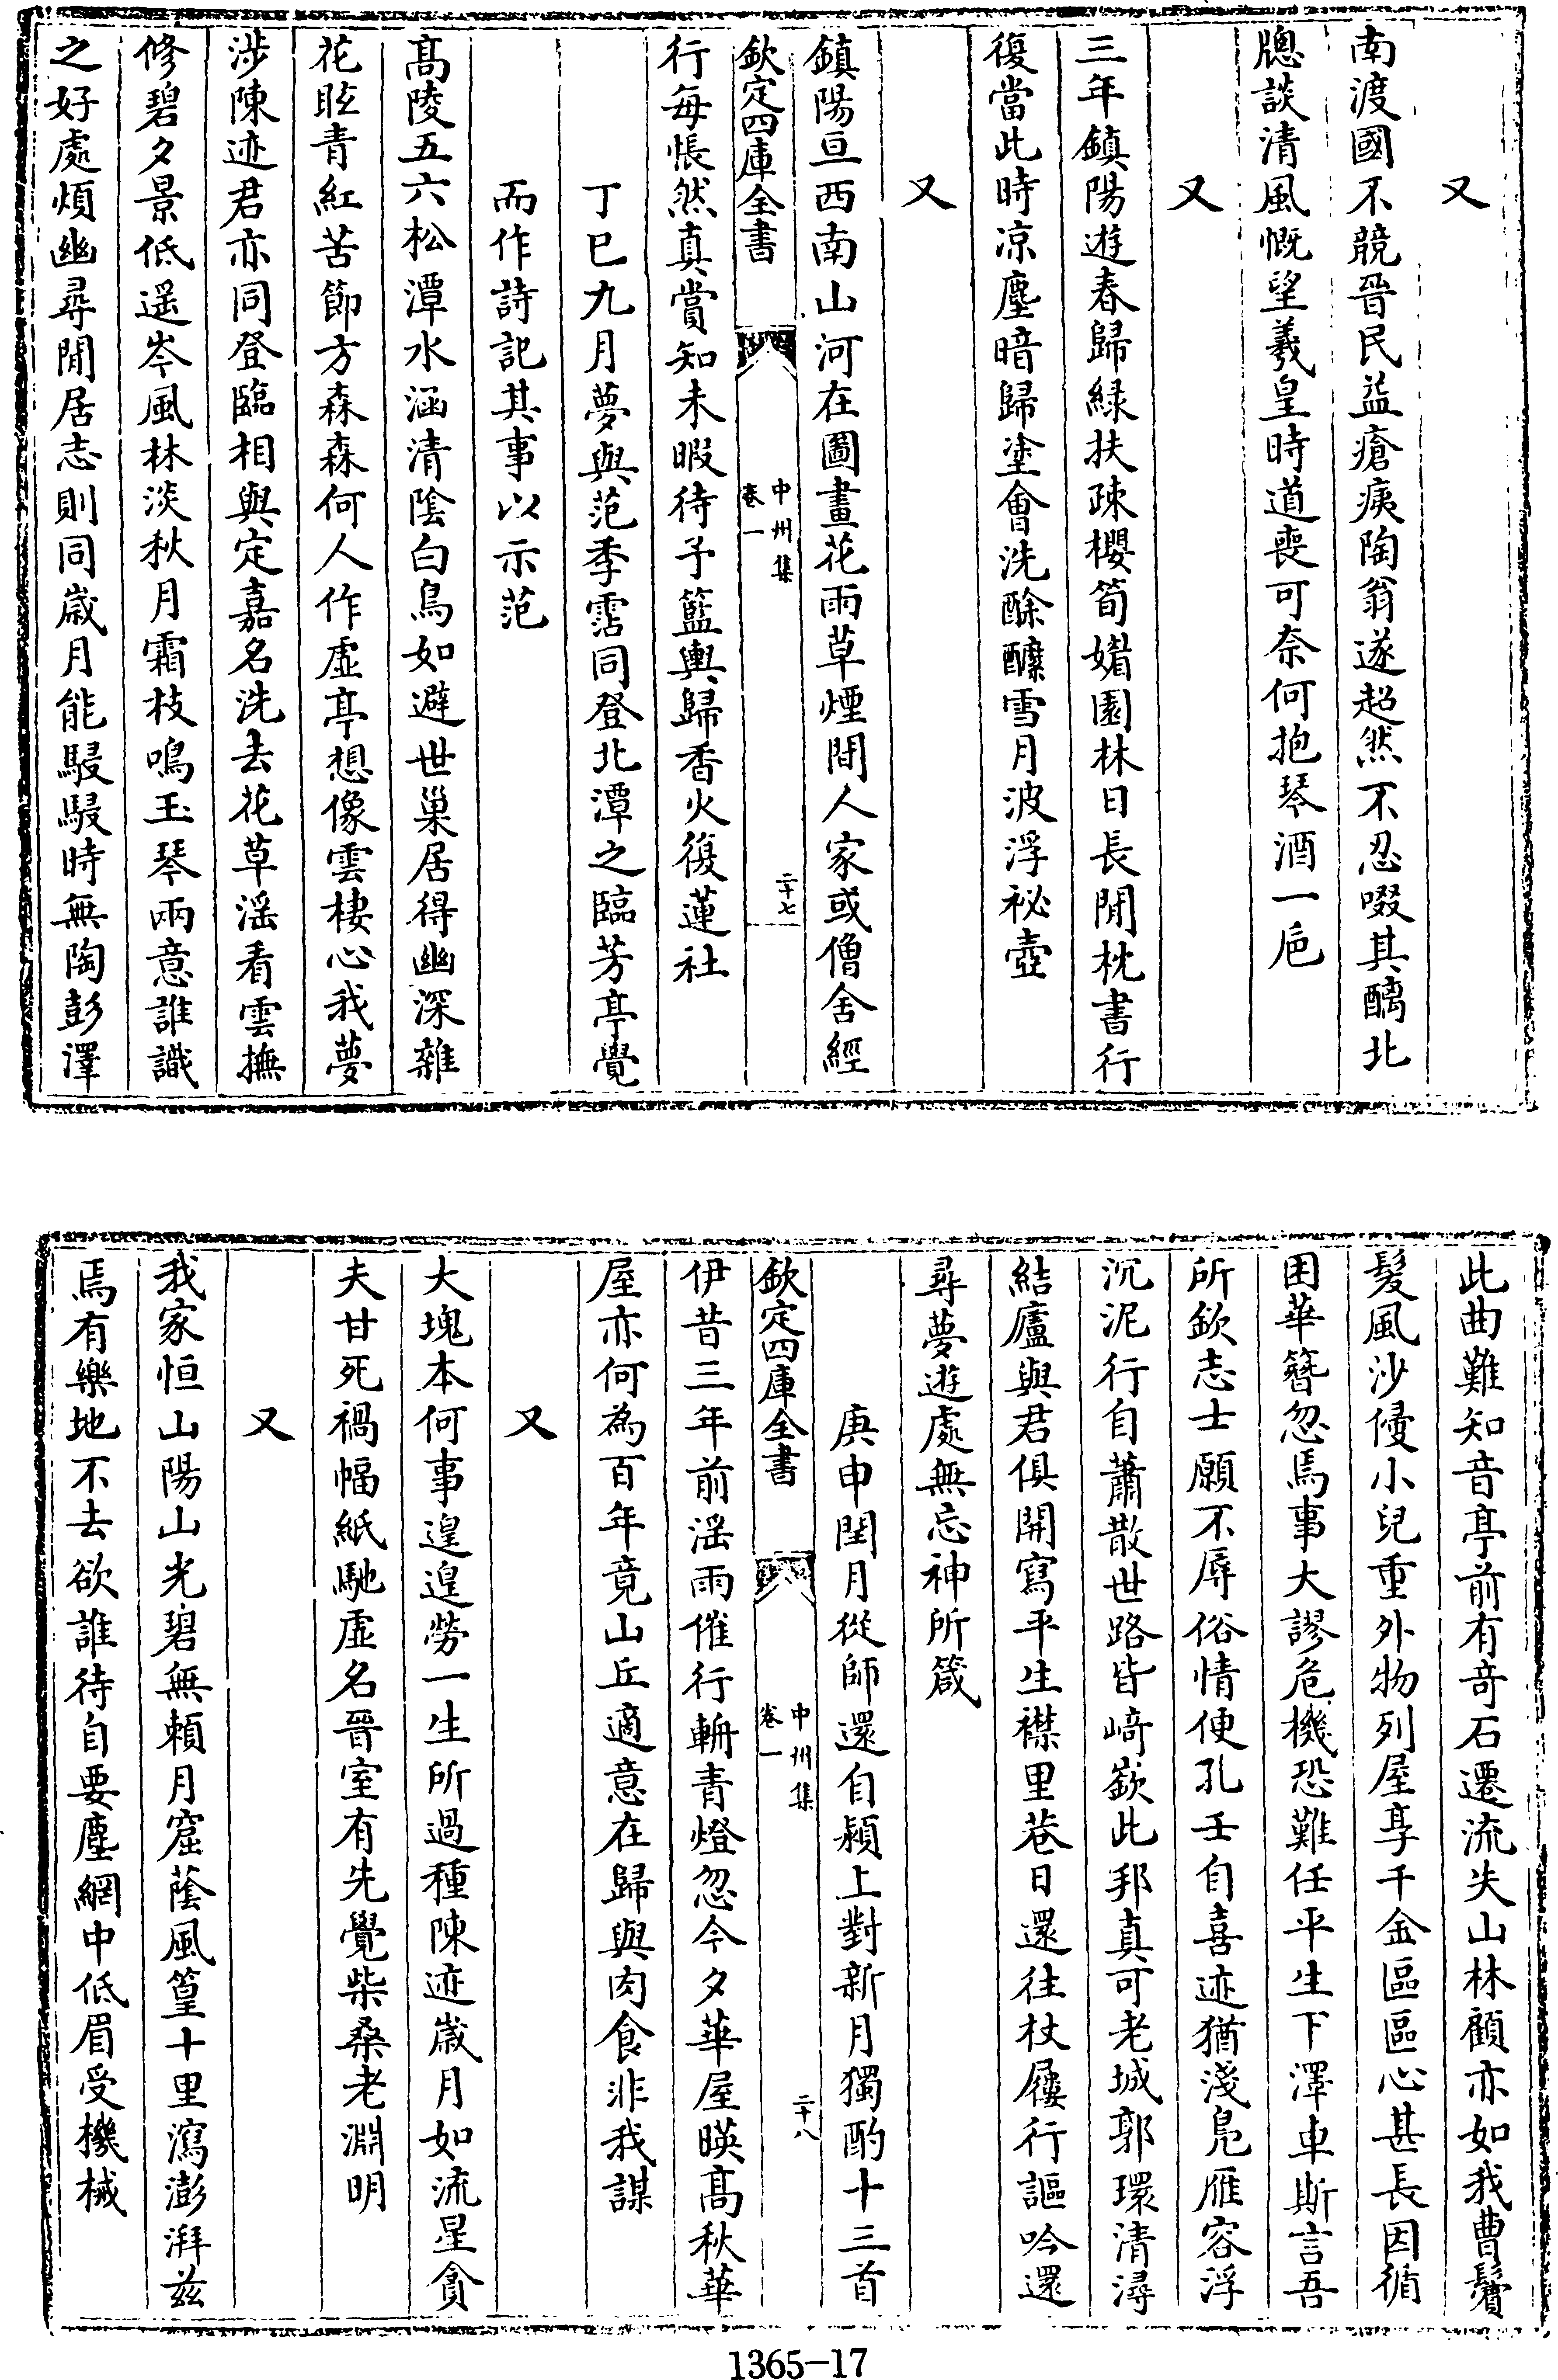 又
南渡國不競晉民益瘡痍陶翁遂超然不忍啜其醨北
牕談清風慨望羲皇時道喪可奈何抱琴酒一巵
又
三年鎮陽遊春歸緑扶疎櫻筍媚園林日長閒枕書行
復當此時凉塵暗歸塗會洗酴醾雪月波浮祕壺
又
鎮陽亘西南山河在圖畫花雨草煙間人家或僧舍經
欽定四庫全書
中州集
卷一
二十七
行每悵然真賞知未暇待予籃輿歸香火復蓮社
丁巳九月夢與范季霑同登北潭之臨芳亭覺
而作詩記其事以示范
髙陵五六松潭水涵清隂白鳥如避世巢居得幽深雜
花眩青紅苦節方森森何人作虛亭想像雲棲心我夢
涉陳迹君亦同登臨相與定嘉名洗去花草滛看雲撫
修碧夕景低遥岑風林淡秋月霜枝鳴玉琴兩意誰識
之好處煩幽尋閒居志則同歲月能駸駸時無陶彭澤
此曲難知音亭前有奇石遷流失山林顧亦如我曹鬢
髮風沙侵小兒重外物列屋享千金區區心甚長因循
困華簪忽焉事大謬危機恐難任平生下澤車斯言吾
所欽志士願不辱俗情便孔壬自喜迹猶淺鳧雁容浮
沉泥行自蕭散世路皆﨑嶔此邦真可老城郭環清潯
結廬與君俱開寫平生襟里巷日還往杖屨行謳吟還
尋夢遊處無忘神所箴
庚申閏月從師還自潁上對新月獨酌十三首
欽定四庫全書
中州集
卷一
二十八
伊昔三年前滛雨催行輈青燈忽今夕華屋暎髙秋華
屋亦何為百年竟山丘適意在歸與肉食非我謀
又
大塊本何事遑遑勞一生所過種陳迹歲月如流星貪
夫甘死禍幅紙馳虛名晉室有先覺柴桑老淵明
又
我家恒山陽山光碧無賴月窟蔭風篁十里瀉澎湃兹
焉有樂地不去欲誰待自要塵網中低眉受機械
1365-17